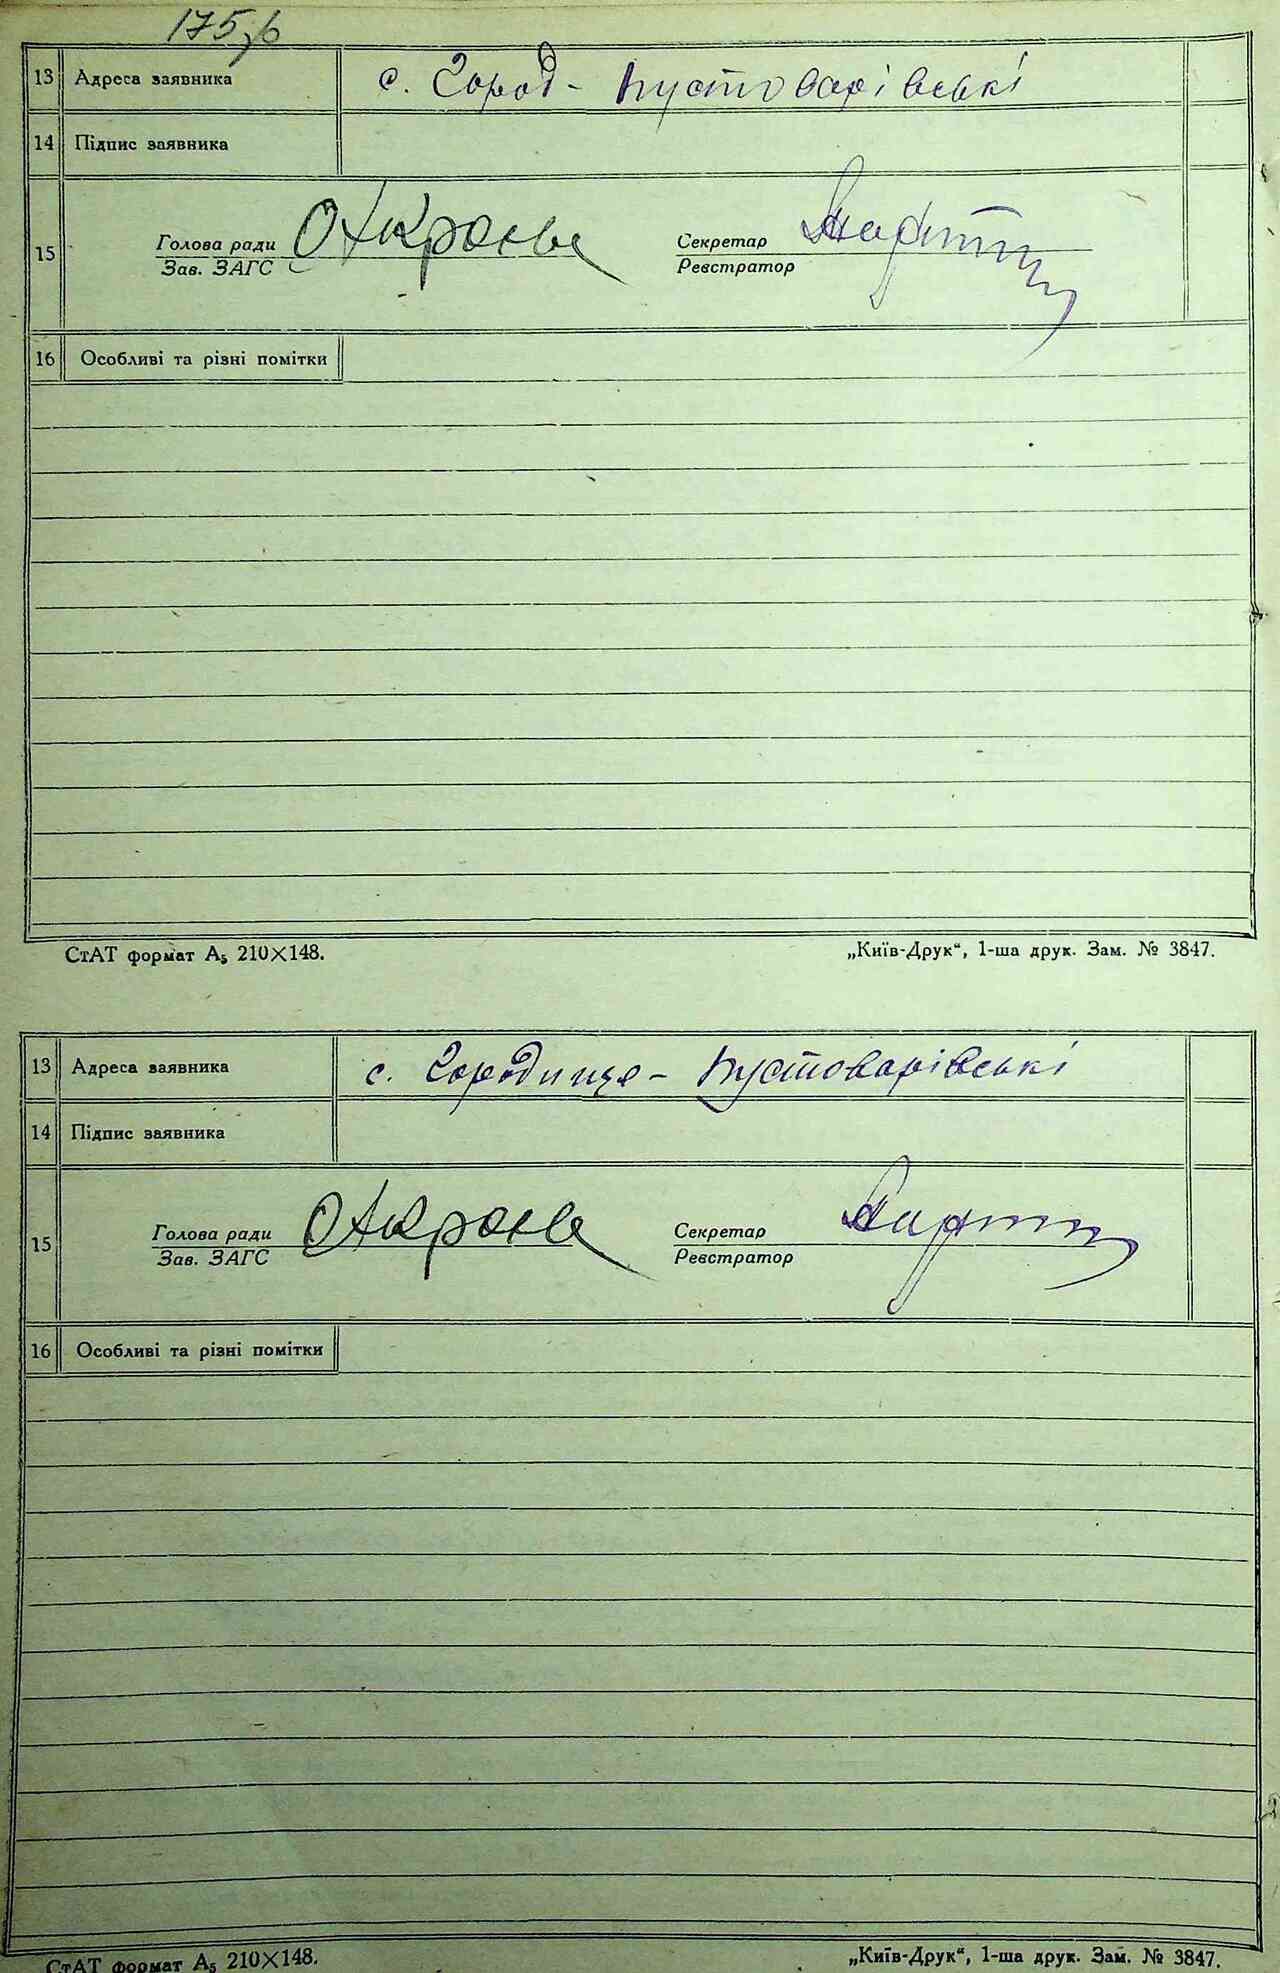 175зв
13 Адреса заявника с. Город- Пустоварівські
14 Підпис заявника
15 Голова ради Секретар
Зав. ЗАГС Реєстратор
16 Особливі та різні помітки
СтАТ формат А₅ 210×148. „Київ-Друк“, 1-ша друк. Зам. № 3847.
13 Адреса заявника с. Городище- Пустоварівські
14 Підпис заявника
15 Голова ради Секретар
Зав. ЗАГС Реєстратор
16 Особливі та різні помітки
СтАТ формат А₅ 210×148. „Київ-Друк“, 1-ша друк. Зам. № 3847.